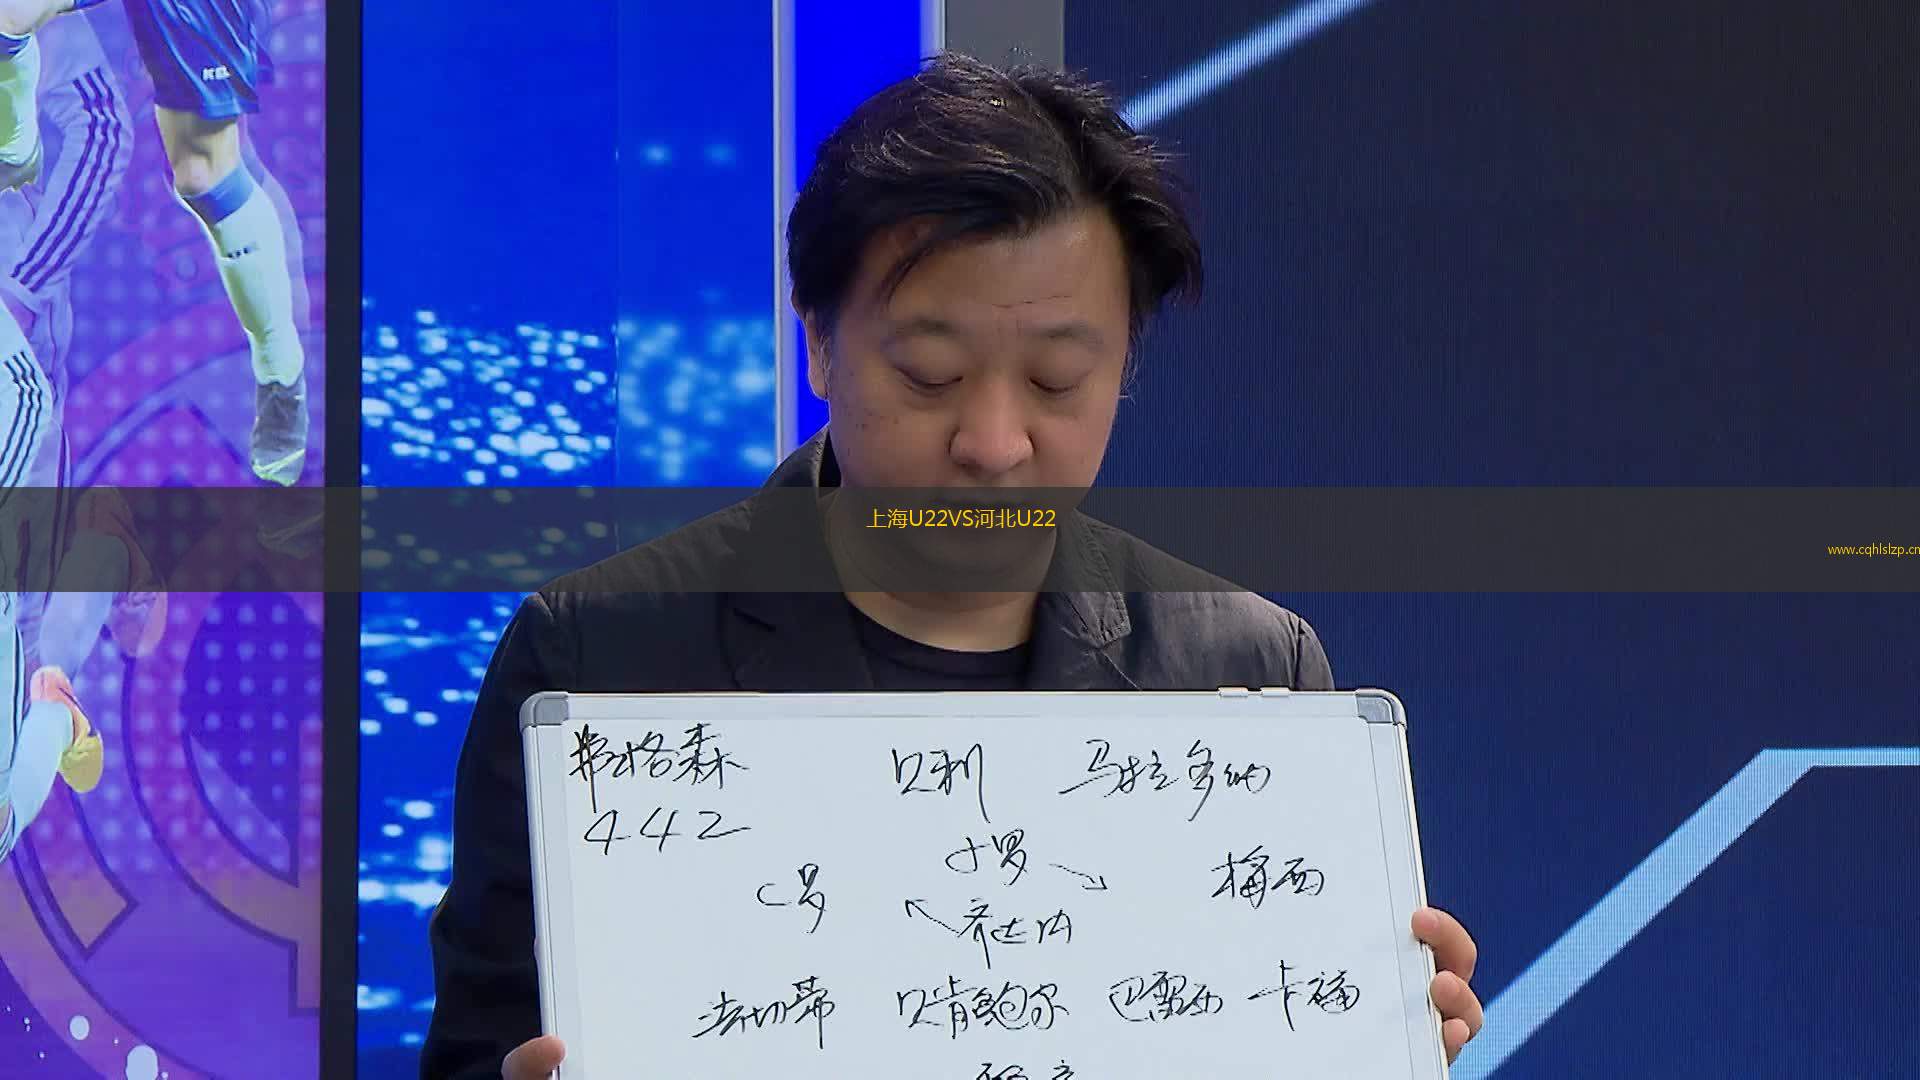 上海U22VS河北U22
www.cqhlslzp.cn
弗格森 贝利 马拉多纳
442
小罗
C罗 梅西
齐达内
法切蒂 贝肯鲍尔 巴雷西 卡福